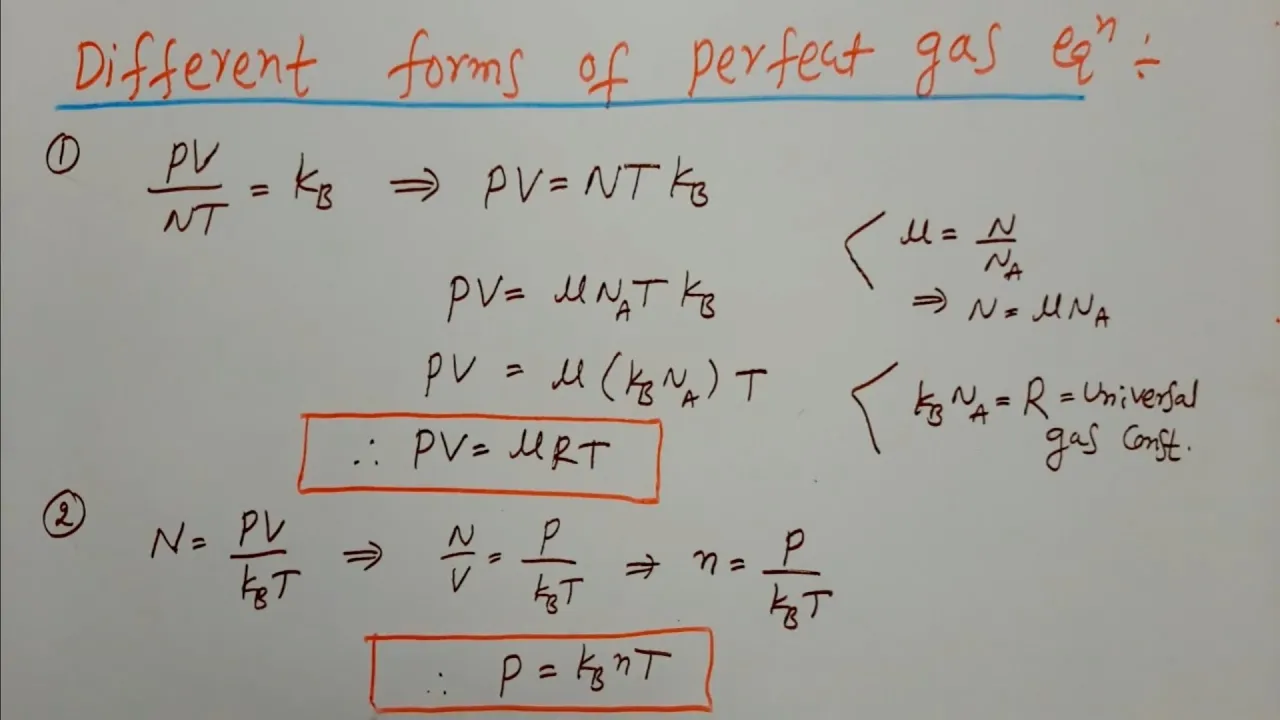 Different forms of perfect gas eqⁿ ÷
① PV/NT = k_B ⇒ PV = NT k_B
μ = N/N_A
⇒ N = μN_A
PV = μN_A T k_B
PV = μ(k_B N_A) T
k_B N_A = R = Universal
gas Const.
∴ PV = μRT
② N = PV/k_BT ⇒ N/V = P/k_BT ⇒ n = P/k_BT
∴ P = k_B nT